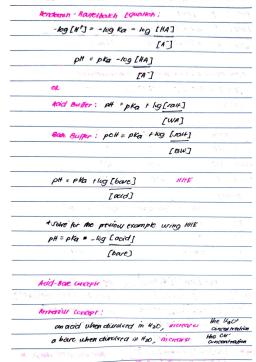 Henderson - Hasselbalch Equation:
-log [H⁺] = -log Ka - log [HA]
[A⁻]
pH = pKa - log [HA]
[A⁻]
OR
Acid Buffer: pH = pKa + log [salt]
[WA]
Base Buffer: pOH = pKa + log [salt]
[BW]
pH = pKa + log [base] HHE
[acid]
*Solve for the previous example using HHE
pH = pKa - log [acid]
[base]
Acid-Base Concepts:
Arrhenius Concept:
an acid when dissolved in H₂O, increases the H₃O⁺ concentration
a base when dissolved in H₂O, increases the OH⁻ concentration